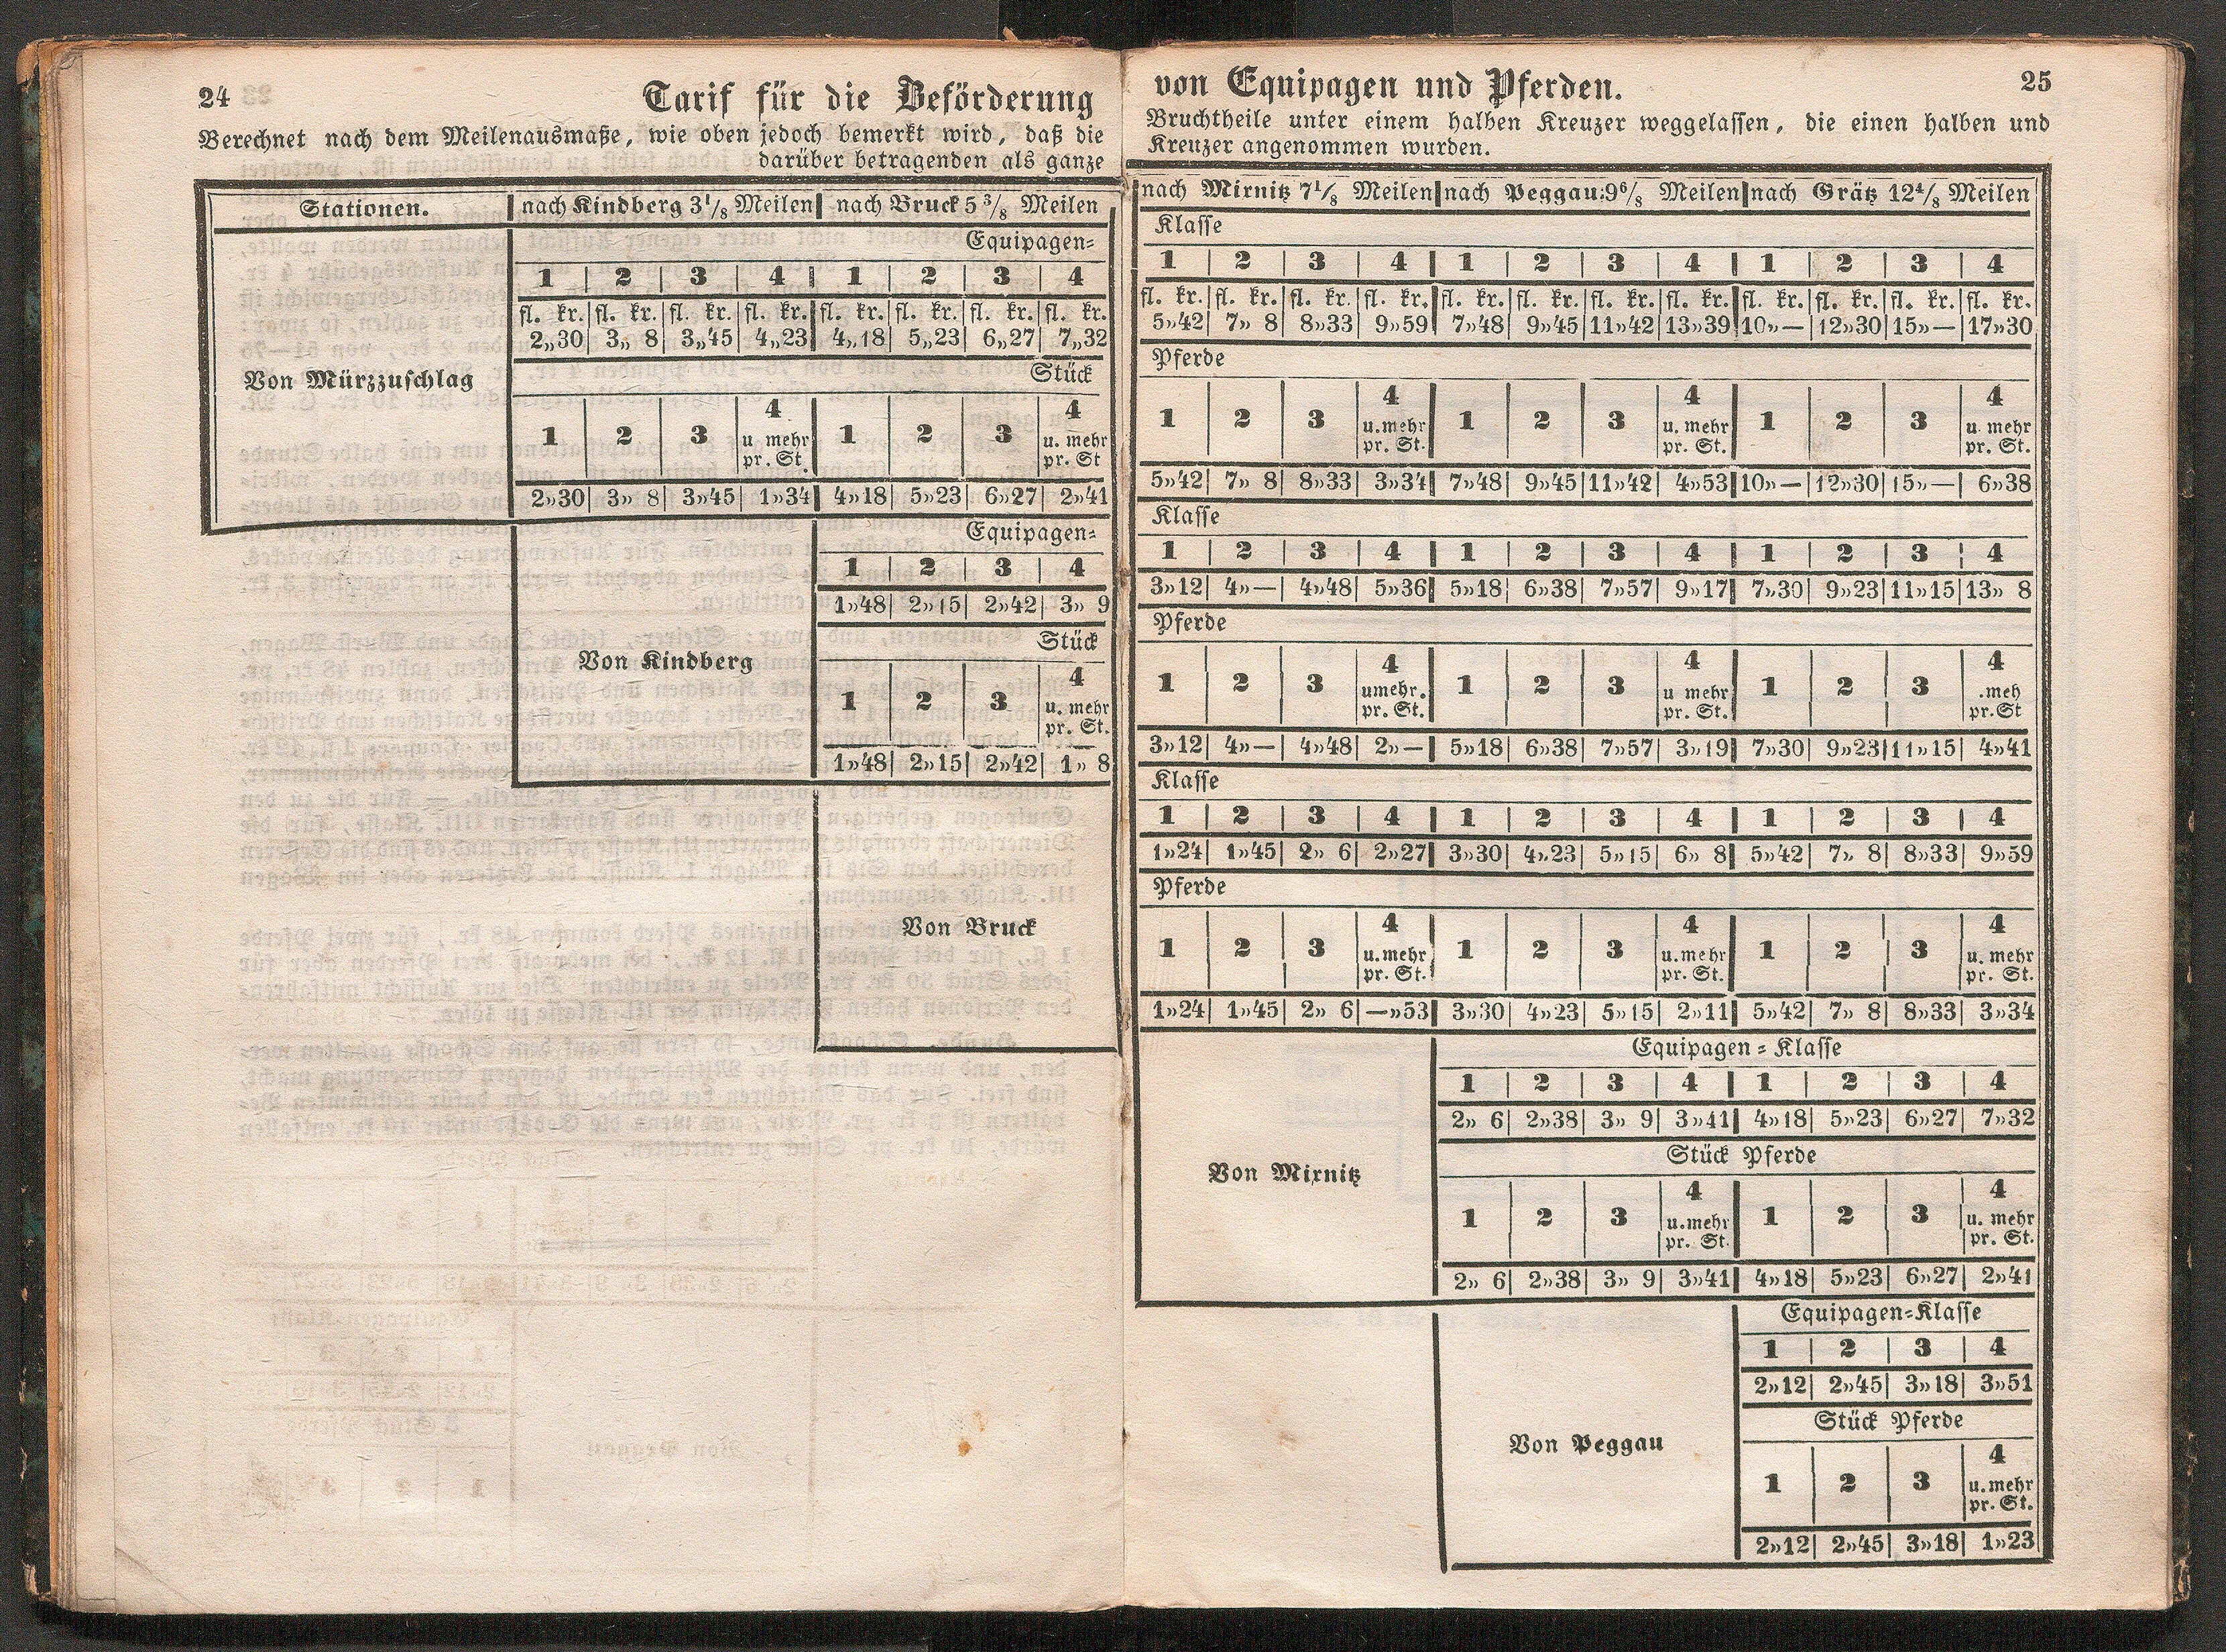 24
Tarif für die Beförderung
Berechnet nach dem Meilenausmaße, wie oben jedoch bemerkt wird, daß die
darüber betragenden als ganze
Stationen. | nach Kindberg 3 1/8 Meilen | nach Bruck 5 3/8 Meilen
Equipagen=
1 | 2 | 3 | 4 | 1 | 2 | 3 | 4
fl. kr. | fl. kr. | fl. kr. | fl. kr. | fl. kr. | fl. kr. | fl. kr. | fl. kr.
2„30 | 3„ 8 | 3„45 | 4„23 | 4„18 | 5„23 | 6„27 | 7„32
Von Mürzzuschlag
Stück
1 | 2 | 3 | 4 u. mehr pr. St. | 1 | 2 | 3 | 4 u. mehr pr. St
2„30 | 3„ 8 | 3„45 | 1„34 | 4„18 | 5„23 | 6„27 | 2„41
Equipagen=
1 | 2 | 3 | 4
1„48 | 2„15 | 2„42 | 3„ 9
Von Kindberg
Stück
1 | 2 | 3 | 4 u. mehr pr. St.
1„48 | 2„15 | 2„42 | 1„ 8
Von Bruck
von Equipagen und Pferden.
25
Bruchtheile unter einem halben Kreuzer weggelassen, die einen halben und
Kreuzer angenommen wurden.
nach Mirnitz 7 1/8 Meilen | nach Peggau: 9 6/8 Meilen | nach Grätz 12 4/8 Meilen
Klasse
1 | 2 | 3 | 4 | 1 | 2 | 3 | 4 | 1 | 2 | 3 | 4
fl. kr. | fl. kr. | fl. kr. | fl. kr. | fl. kr. | fl. kr. | fl. kr. | fl. kr. | fl. kr. | fl. kr. | fl. kr. | fl. kr.
5„42 | 7„ 8 | 8„33 | 9„59 | 7„48 | 9„45 | 11„42 | 13„39 | 10„— | 12„30 | 15„— | 17„30
Pferde
1 | 2 | 3 | 4 u. mehr pr. St. | 1 | 2 | 3 | 4 u. mehr pr. St. | 1 | 2 | 3 | 4 u. mehr pr. St.
5„42 | 7„ 8 | 8„33 | 3„34 | 7„48 | 9„45 | 11„42 | 4„53 | 10„— | 12„30 | 15„— | 6„38
Klasse
1 | 2 | 3 | 4 | 1 | 2 | 3 | 4 | 1 | 2 | 3 | 4
3„12 | 4„— | 4„48 | 5„36 | 5„18 | 6„38 | 7„57 | 9„17 | 7„30 | 9„23 | 11„15 | 13„ 8
Pferde
1 | 2 | 3 | 4 umehr. pr. St. | 1 | 2 | 3 | 4 u mehr pr. St. | 1 | 2 | 3 | 4 .meh pr.St
3„12 | 4„— | 4„48 | 2„— | 5„18 | 6„38 | 7„57 | 3„19 | 7„30 | 9„23 | 11„15 | 4„41
Klasse
1 | 2 | 3 | 4 | 1 | 2 | 3 | 4 | 1 | 2 | 3 | 4
1„24 | 1„45 | 2„ 6 | 2„27 | 3„30 | 4„23 | 5„15 | 6„ 8 | 5„42 | 7„ 8 | 8„33 | 9„59
Pferde
1 | 2 | 3 | 4 u. mehr pr. St. | 1 | 2 | 3 | 4 u. mehr pr. St. | 1 | 2 | 3 | 4 u. mehr pr. St.
1„24 | 1„45 | 2„ 6 | —„53 | 3„30 | 4„23 | 5„15 | 2„11 | 5„42 | 7„ 8 | 8„33 | 3„34
Equipagen = Klasse
1 | 2 | 3 | 4 | 1 | 2 | 3 | 4
2„ 6 | 2„38 | 3„ 9 | 3„41 | 4„18 | 5„23 | 6„27 | 7„32
Von Mirnitz
Stück Pferde
1 | 2 | 3 | 4 u. mehr pr. St. | 1 | 2 | 3 | 4 u. mehr pr. St.
2„ 6 | 2„38 | 3„ 9 | 3„41 | 4„18 | 5„23 | 6„27 | 2„41
Equipagen=Klasse
1 | 2 | 3 | 4
2„12 | 2„45 | 3„18 | 3„51
Stück Pferde
Von Peggau
1 | 2 | 3 | 4 u. mehr pr. St.
2„12 | 2„45 | 3„18 | 1„23